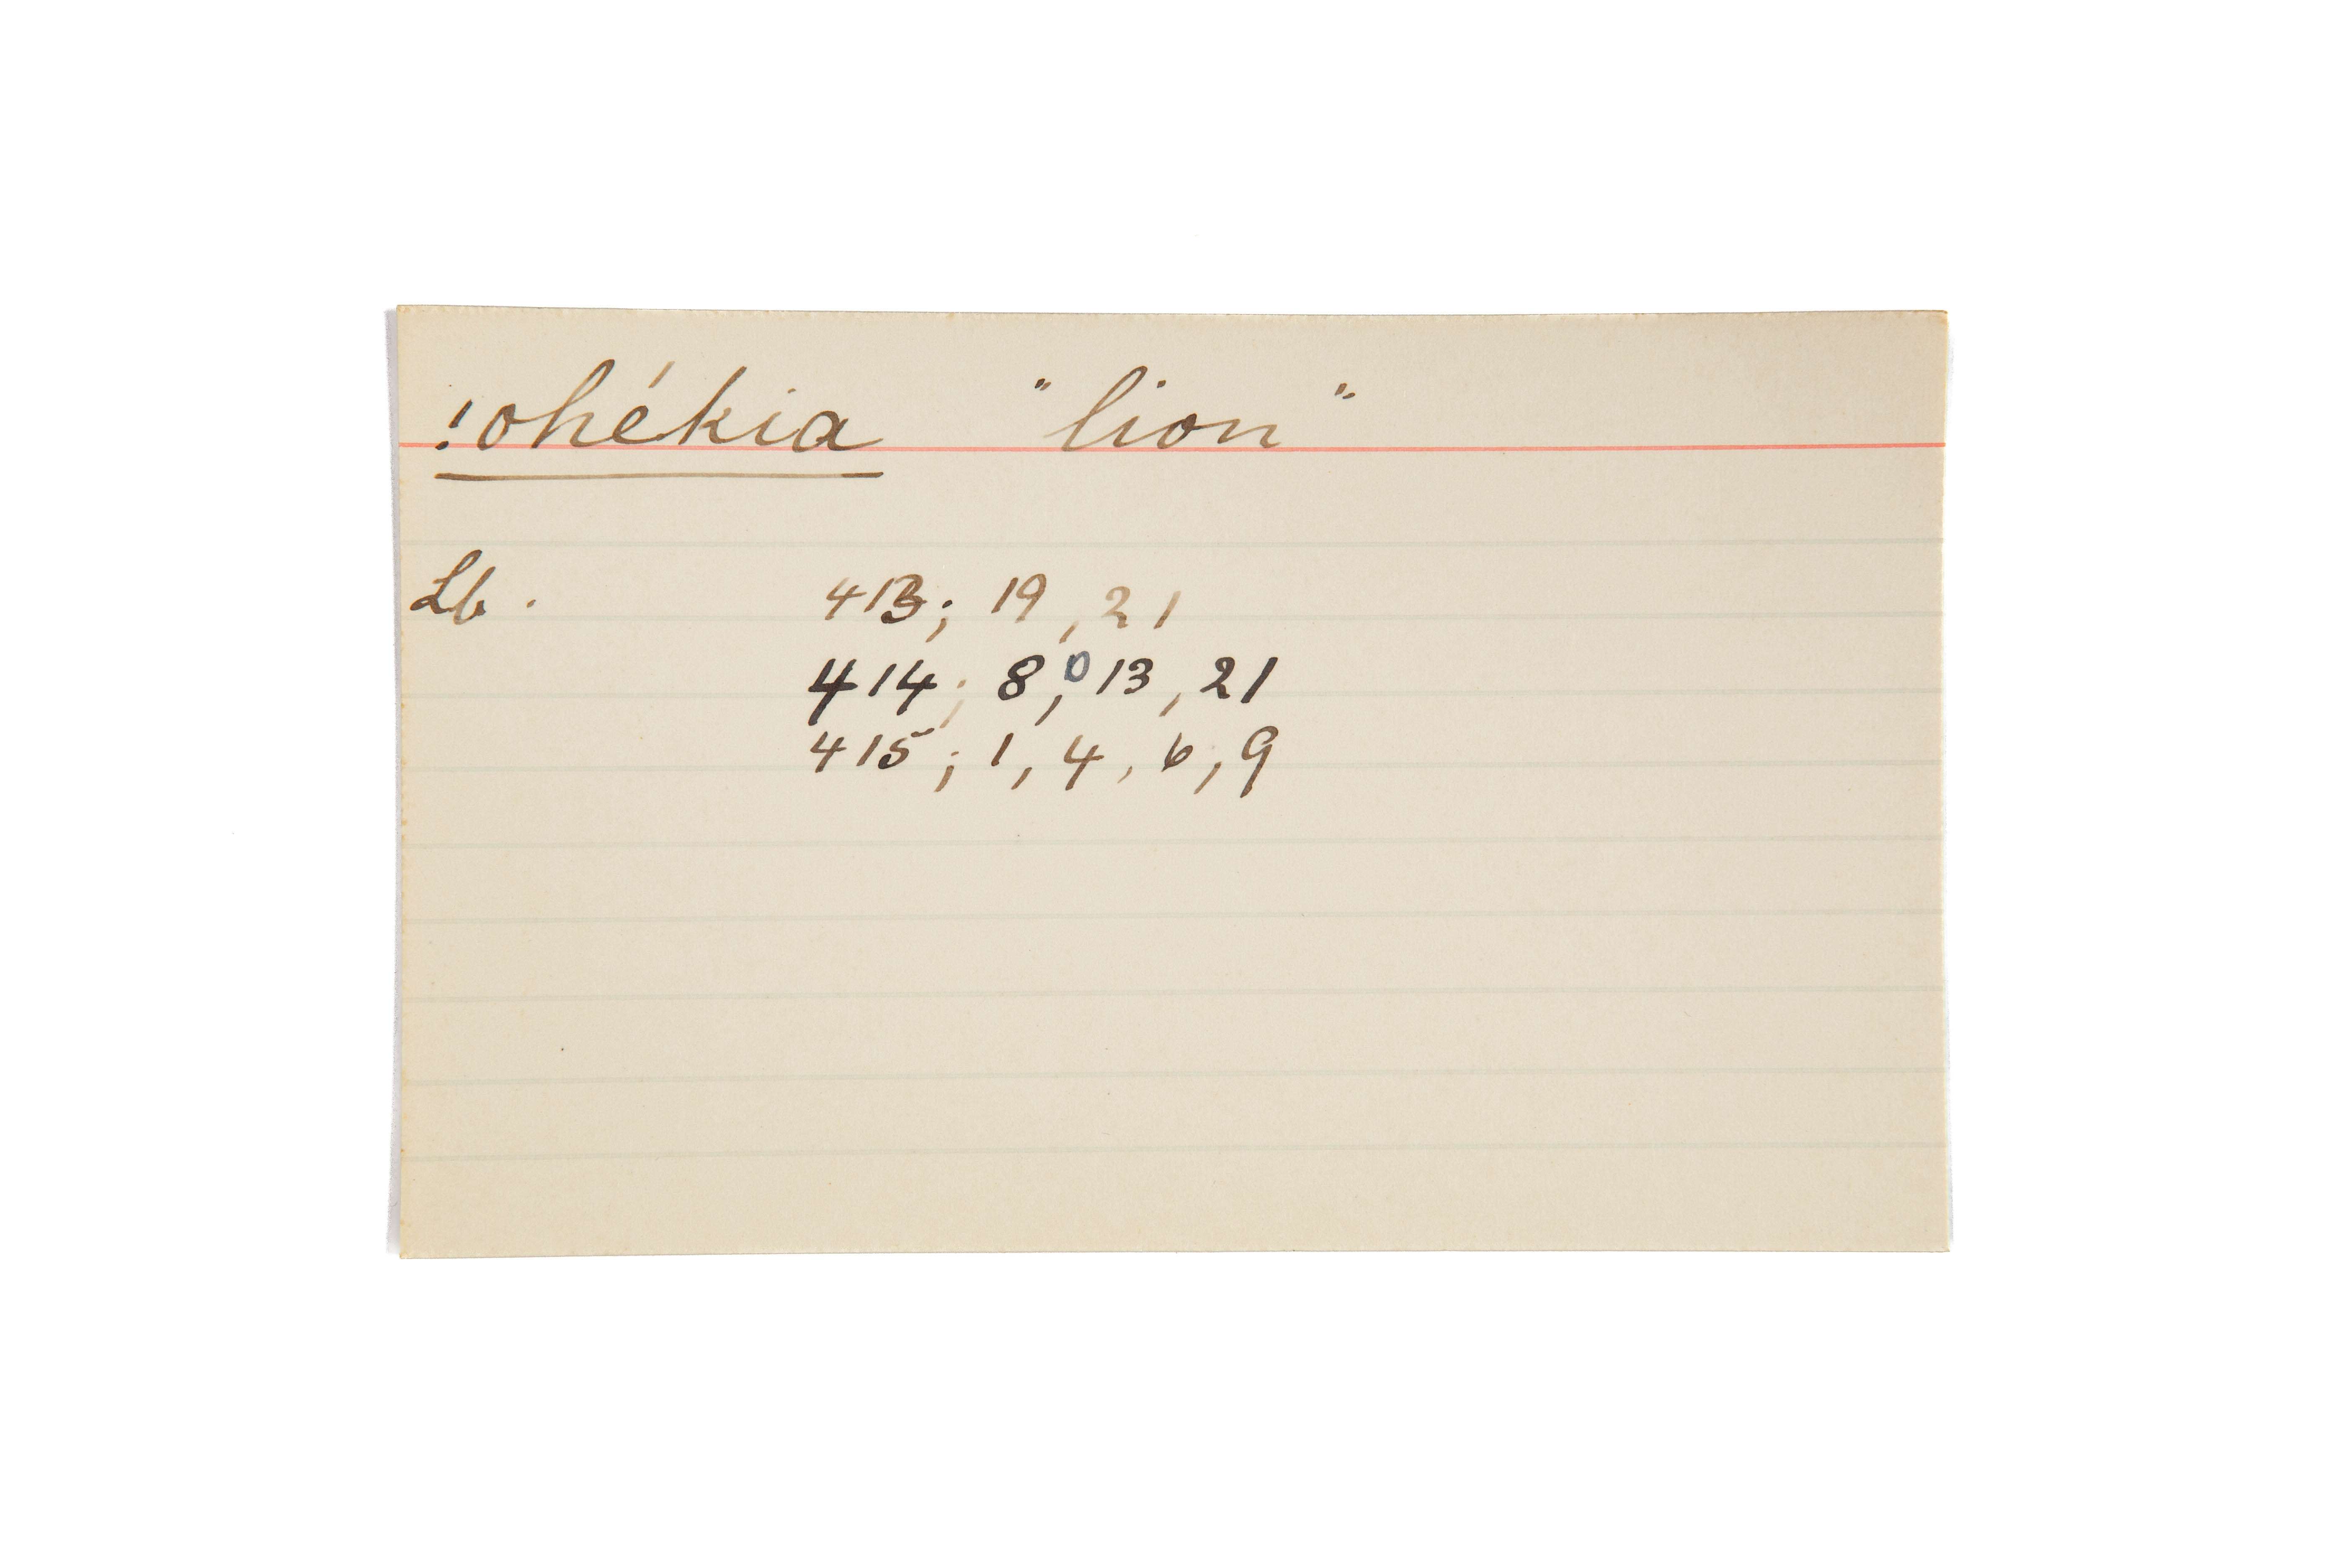 !ohékia "lion"
Lb. 413; 19, 21
414; 8, 13, 21
415; 1, 4, 6, 9